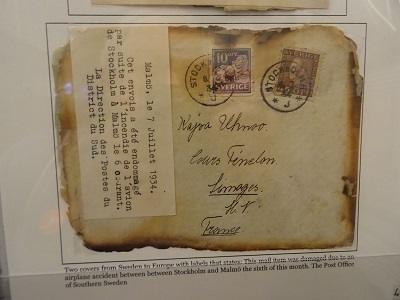 Malmö, le 7 Juillet 1934.
Cet envois a été endommagé
par suite de l'incendie de l'avion
de Stockholm à Malmö le 6 courant.
La Direction des Postes du
District du Sud.
STOCKHOLM
10
SVERIGE
SVERIGE
STOCKHOLM
J
J
Cours Fénelon
Limoges
H. V.
France
Two covers from Sweden to Europe with labels that states: This mail item was damaged due to an
airplane accident between between Stockholm and Malmö the sixth of this month. The Post Office
of Southern Sweden